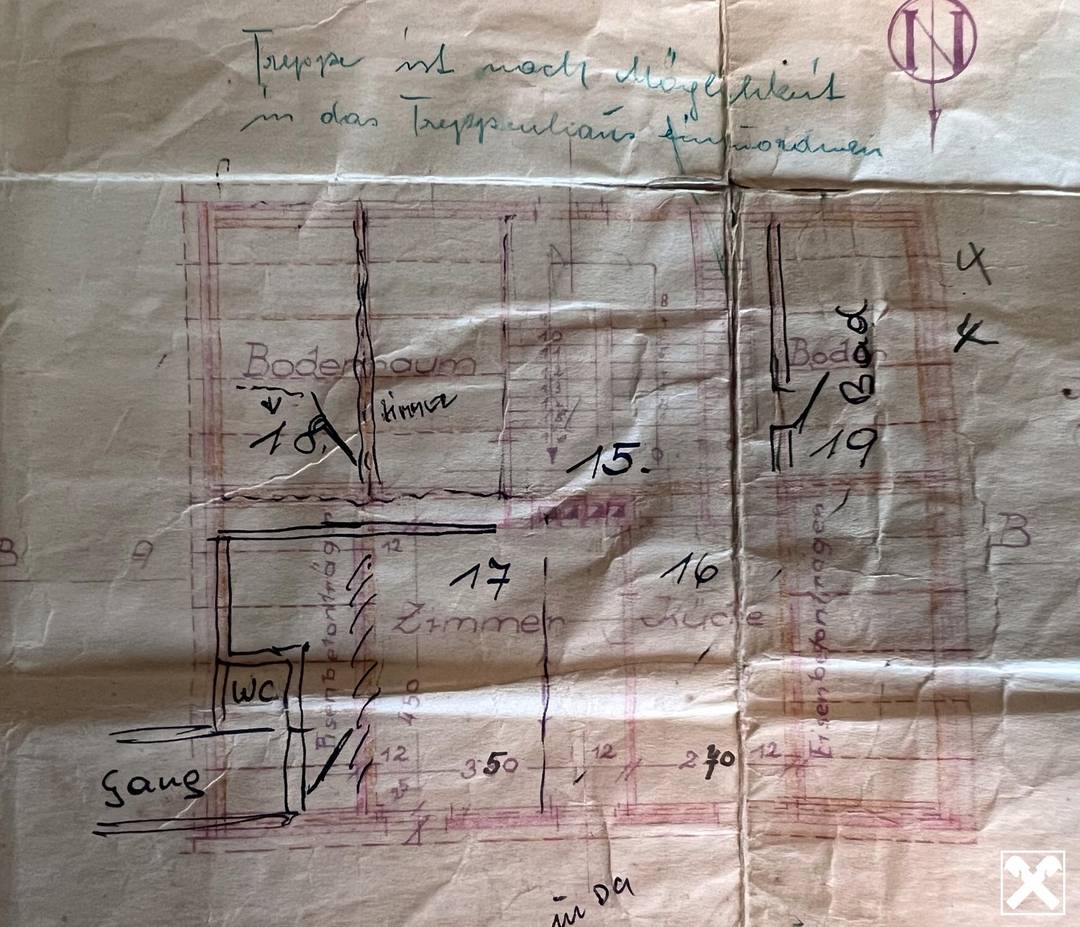 N
Treppe ist nach Möglichkeit
in das Treppenhaus einzuordnen
Bodenraum
zimmer
18.
15.
8
Boden
Bad
19
4
4
B
9
B
Eisenbetonträger
12
17
16
Zimmer
Küche
Eisenbetonträger
WC
450
Gang
12
350
12
270
12
25
in DG